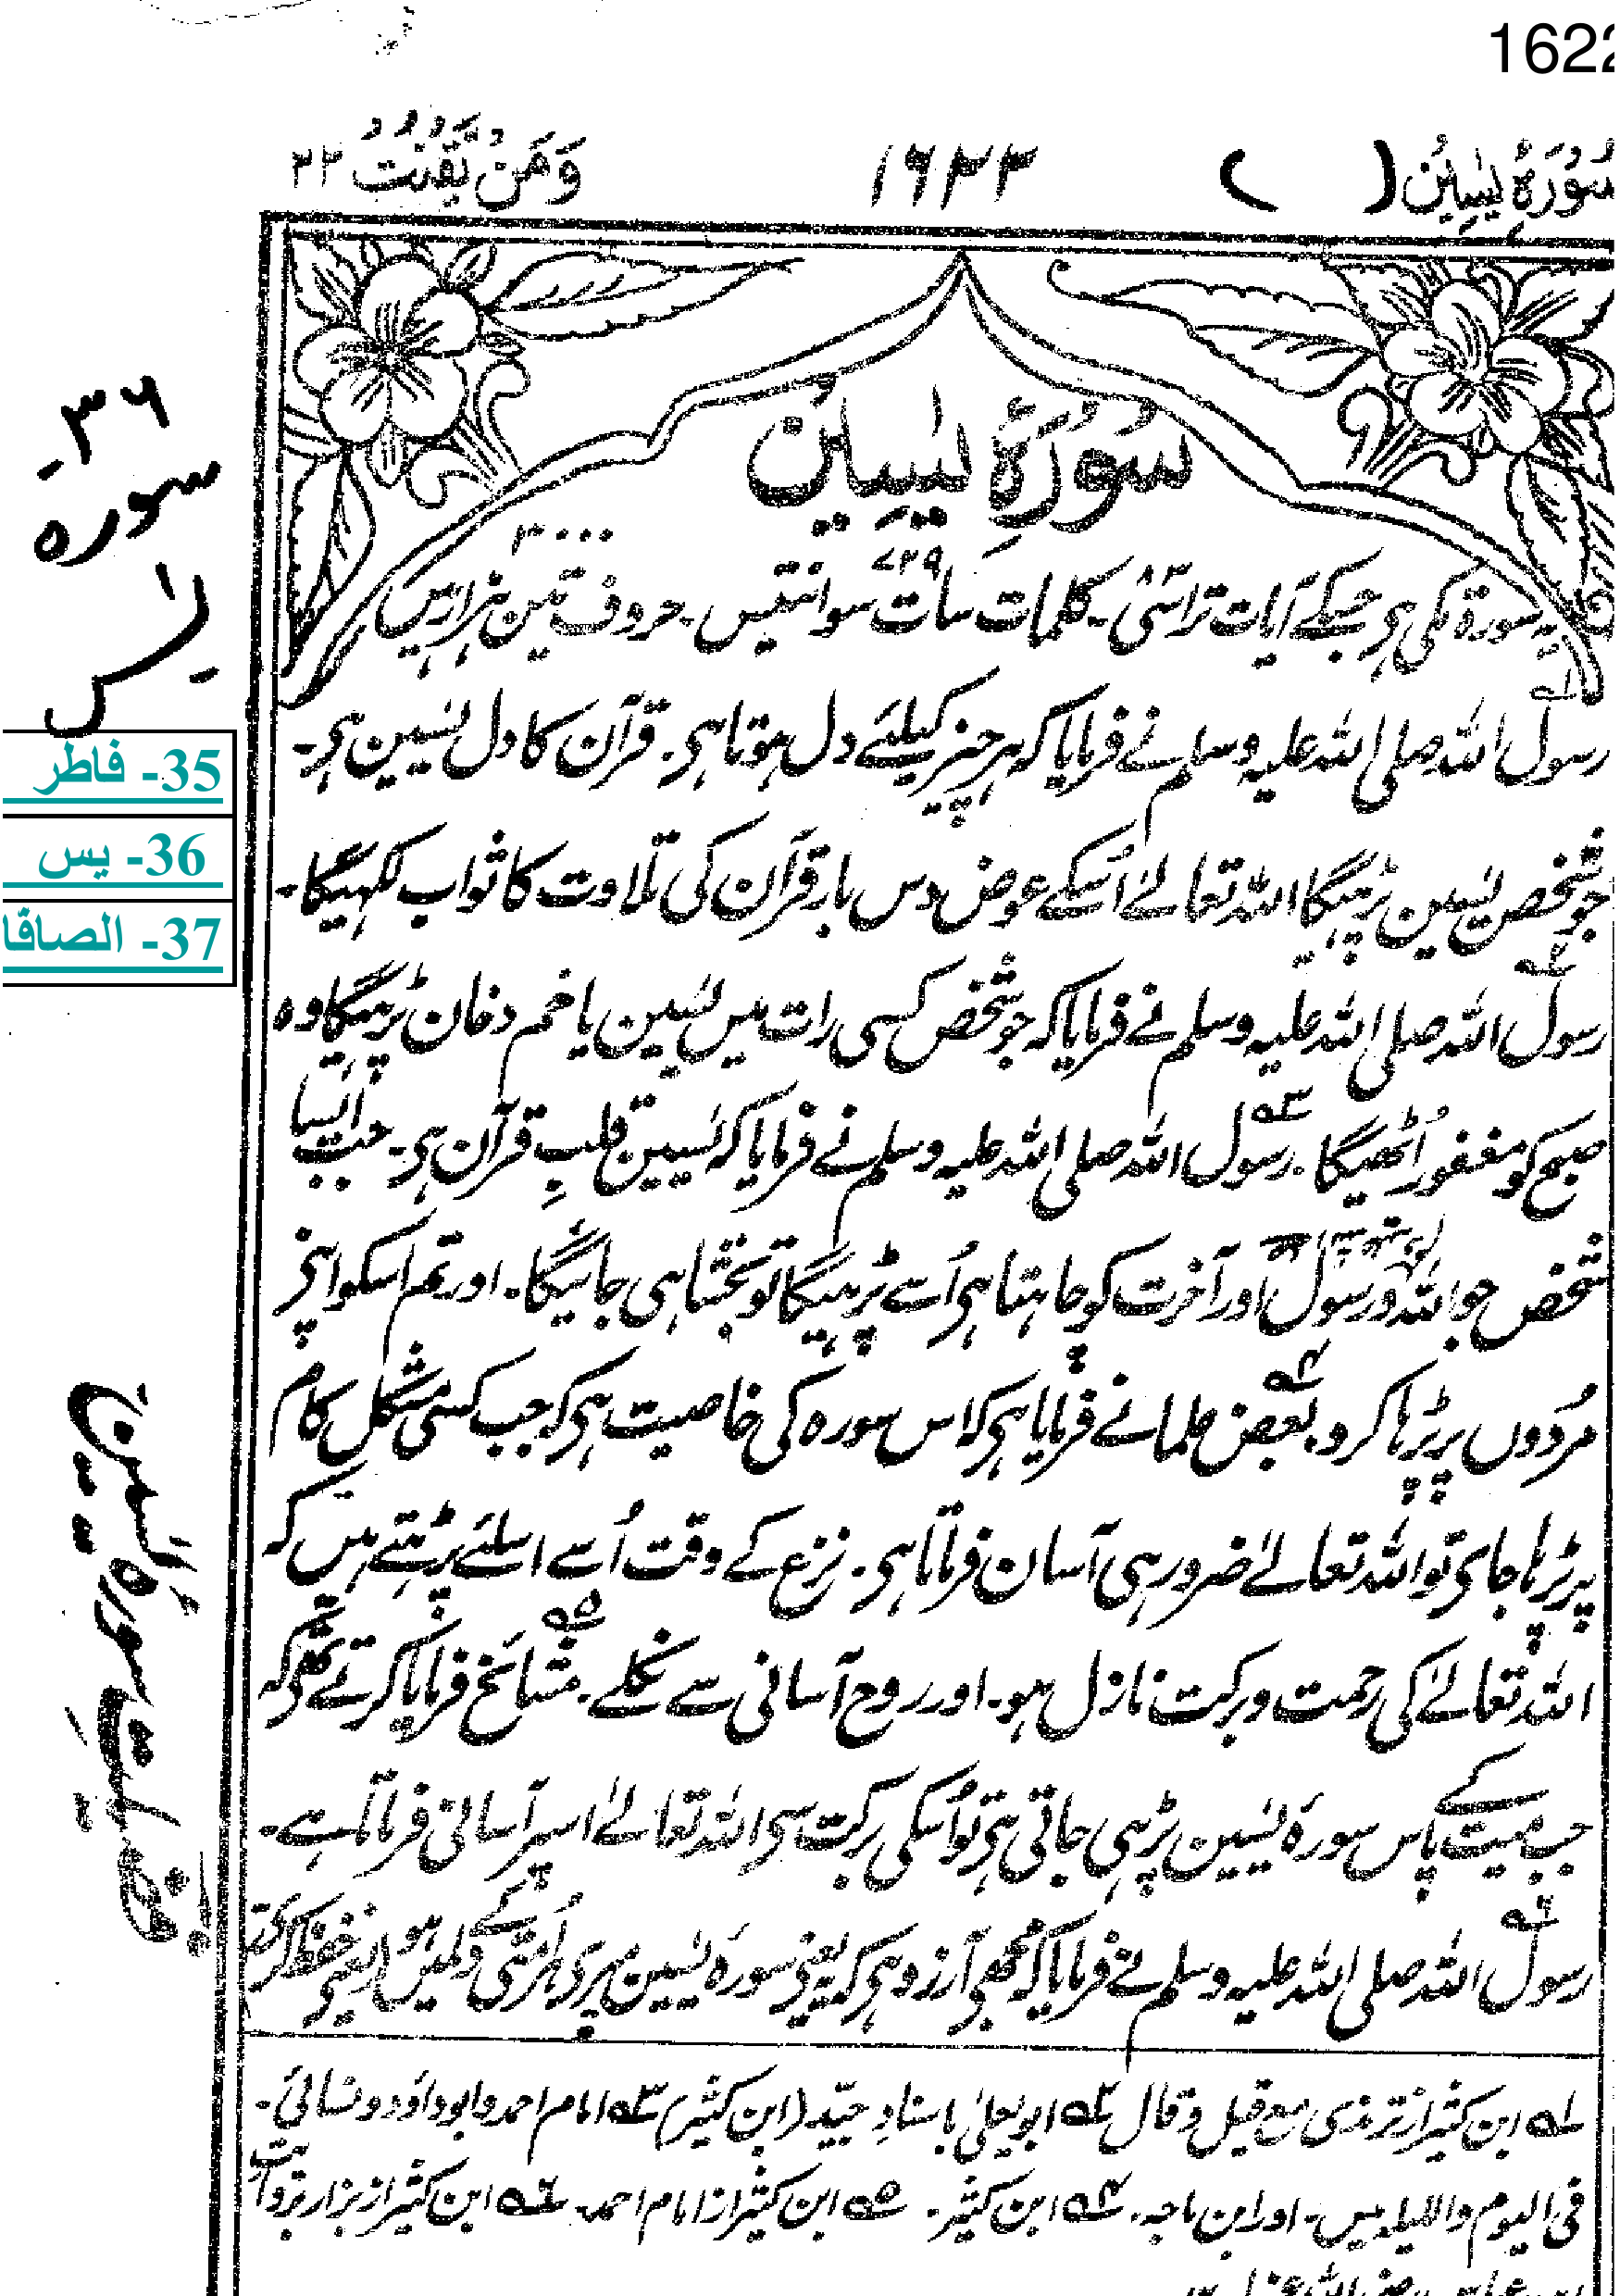 1622
سُوْرَۃُ یٰسِیْن ( )
۱۶۲۲
وَمَنْ یَّقْنُتْ ۲۲
سُوْرَۃُ یٰسِیْن
یہ سورۃ مکی ہی جسکے آیات تراسی ۸۳۔ کلمات سات سو انتیس ۷۲۹۔ حروف تین ہزار ۳۰۰۰ ہیں
رسول اللہ صلی اللہ علیہ وسلم نے فرمایا کہ ہر چیز کیلئے دل ہوتا ہی۔ قرآن کا دل یٰسین ہی۔
جو شخص یٰسین پڑہیگا اللہ تعالےٰ اُسکے عوض دس بار قرآن کی تلاوت کا ثواب لکہیگا۔
رسول اللہ صلی اللہ علیہ وسلم نے فرمایا کہ جو شخص کسی رات میں یٰسین یا حٰم دخان پڑہیگا وہ
صبح کو مغفور اُٹھیگا۔ رسول اللہ صلی اللہ علیہ وسلم نے فرمایا کہ یٰسین قلبِ قرآن ہی۔ جب ایسا
شخص جو اللہ و رسول اور آخرت کو چاہتا ہی اُسے پڑہیگا تو بخشا ہی جائیگا۔ اور تم اسکو اپنے
مُردوں پر پڑہا کرو۔ بعض علما نے فرمایا ہی کہ اس سورہ کی خاصیت ہی کہ جب کسی مشکل کام
پر پڑہا جای تو اللہ تعالےٰ ضرور ہی آسان فرماتا ہی۔ نزع کے وقت اُسے اسلئے پڑہتے ہیں کہ
اللہ تعالےٰ کی رحمت و برکت نازل ہو۔ اور روح آسانی سے نکلے۔ مشائخ فرمایا کرتے تھے کہ
جب میت کے پاس سورۂ یٰسین پڑہی جاتی ہی تو اُسکی برکت سی اللہ تعالےٰ اسپر آسانی فرماتا ہے۔
رسول اللہ صلی اللہ علیہ وسلم نے فرمایا کہ مجھے آرزو ہی کہ یہ یعنی سورۂ یٰسین میری ہر اُمتی کے دلمیں ہو
۱؎ ابن کثیر از ترمذی مع قیل و قال ۲؎ ابو یعلیٰ باسنادِ جیّد (ابن کثیر) ۳؎ امام احمد و ابو داؤد و نسائی۔
فی الیوم واللیلہ میں۔ اور ابن ماجہ۔ ۴؎ ابن کثیر۔ ۵؎ ابن کثیر از امام احمد۔ ۶؎ ابن کثیر از بزار بروایت
۳۶-
سورہ
یٰس
35- فاطر
36- یس
37- الصاقا
فضیلت سورہ یٰسین